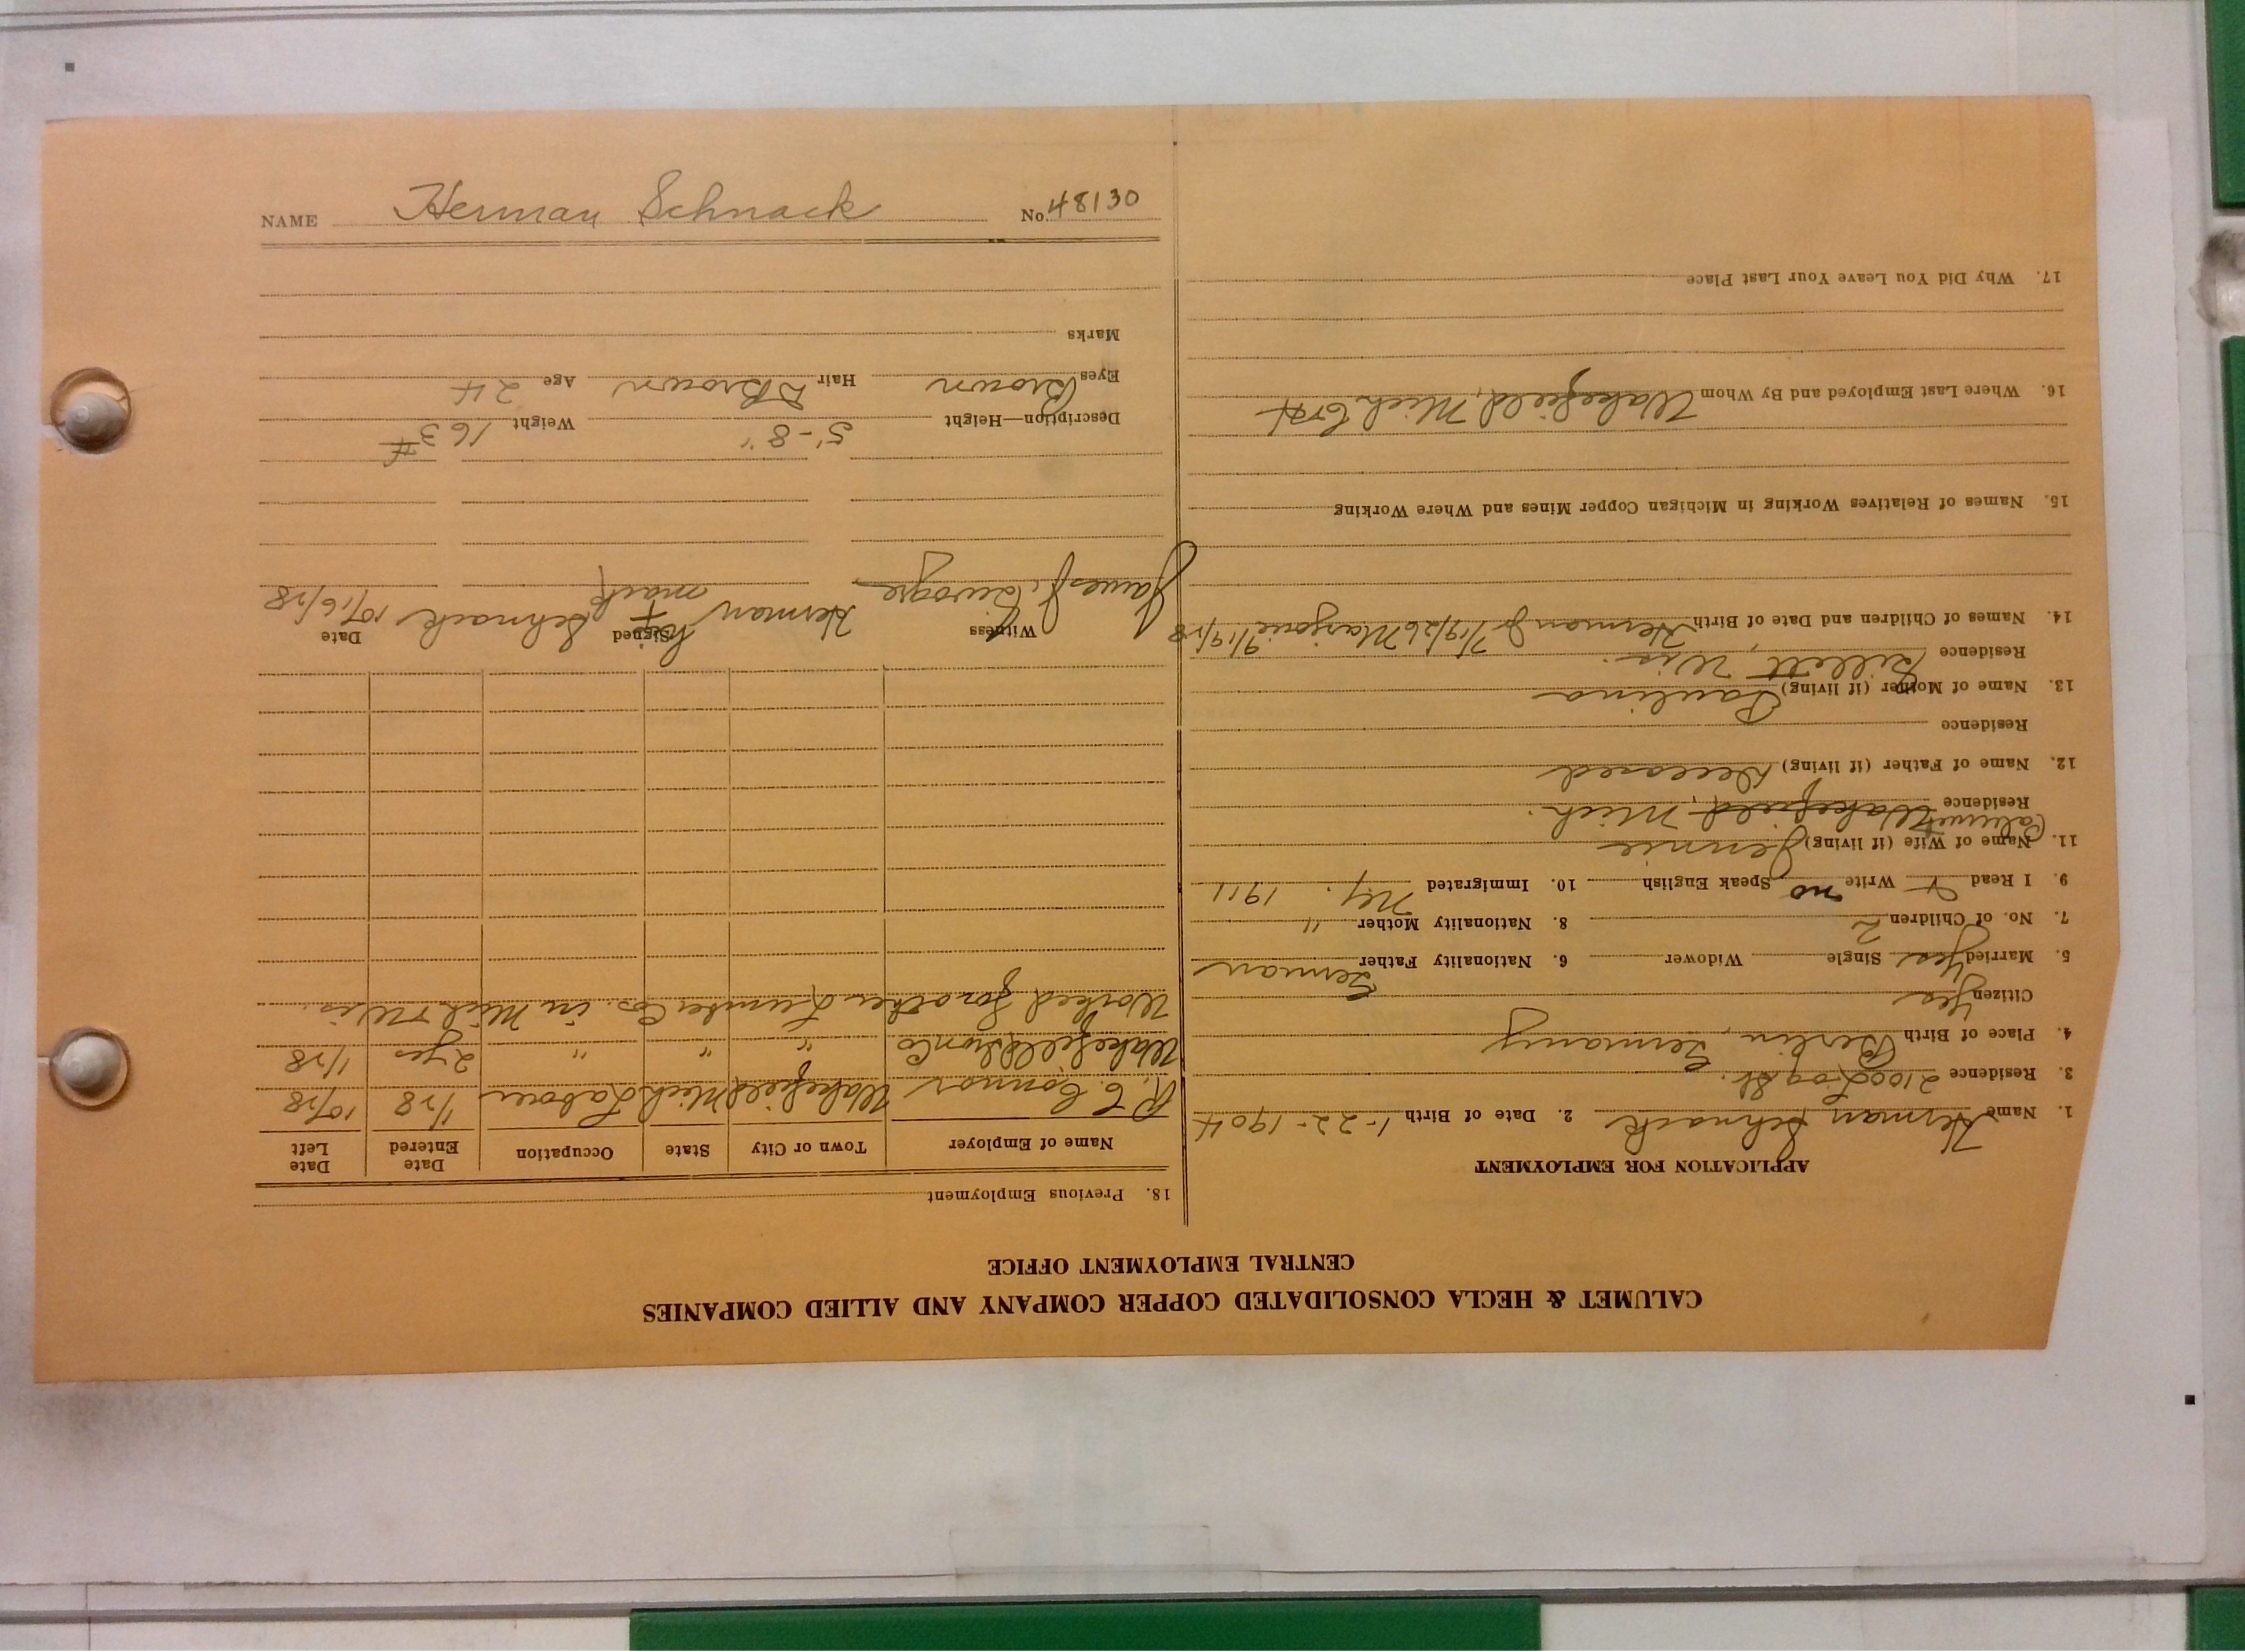 NAME Herman Schnack No. 48130
CALUMET & HECLA CONSOLIDATED COPPER COMPANY AND ALLIED COMPANIES
CENTRAL EMPLOYMENT OFFICE
APPLICATION FOR EMPLOYMENT
1. Name Herman Schnack 2. Date of Birth 1-22-1904
3. Residence 2100 Log St.
4. Place of Birth Berlin, Germany
Citizen Yes
5. Married Yes Single Widower 6. Nationality Father German
7. No. of Children 2 8. Nationality Mother "
9. I Read Write no Speak English 10. Immigrated 1911
11. Name of Wife (if living) Jennie
Calumet
Residence Wakefield, Mich.
12. Name of Father (if living) Deceased
Residence
13. Name of Mother (if living) Paulina
Residence Gillett, Wis.
14. Names of Children and Date of Birth Herman Jr 7/19/26 Marjorie 9/19/28
15. Names of Relatives Working in Michigan Copper Mines and Where Working
16. Where Last Employed and By Whom Wakefield, Mich.
17. Why Did You Leave Your Last Place
18. Previous Employment
Name of Employer Town or City State Occupation Date Entered Date Left
R. C. Connor Wakefield Mich Laborer 1/28 10/28
Wakefield Iron Co " " " 2 yrs 1/28
Worked for other Lumber Cos. in Mich & Wis.
Witness Signed Date
James Herman his X mark Schnack 10/16/28
Description—Height 5'-8" Weight 163#
Eyes Brown Hair D Brown Age 24
Marks